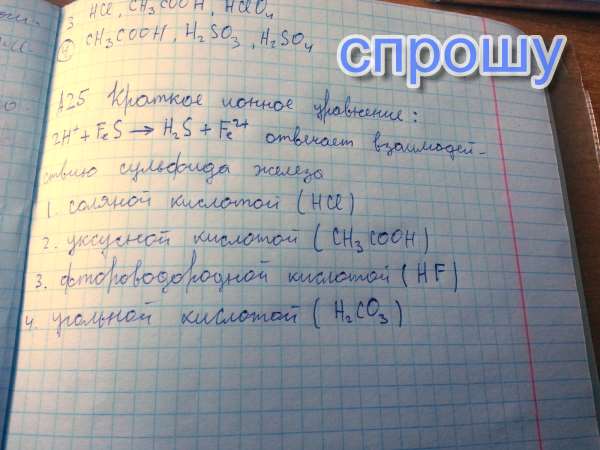 3 HCl, CH3COOH, HClO4
4 CH3COOH, H2SO3, H2SO4
спрошу
A25 Краткое ионное уравнение:
2H+ + FeS → H2S + Fe2+ отвечает взаимодей-
ствию сульфида железа
1. соляной кислотой (HCl)
2. уксусной кислотой (CH3COOH)
3. фтороводородной кислотой (HF)
4. угольной кислотой (H2CO3)